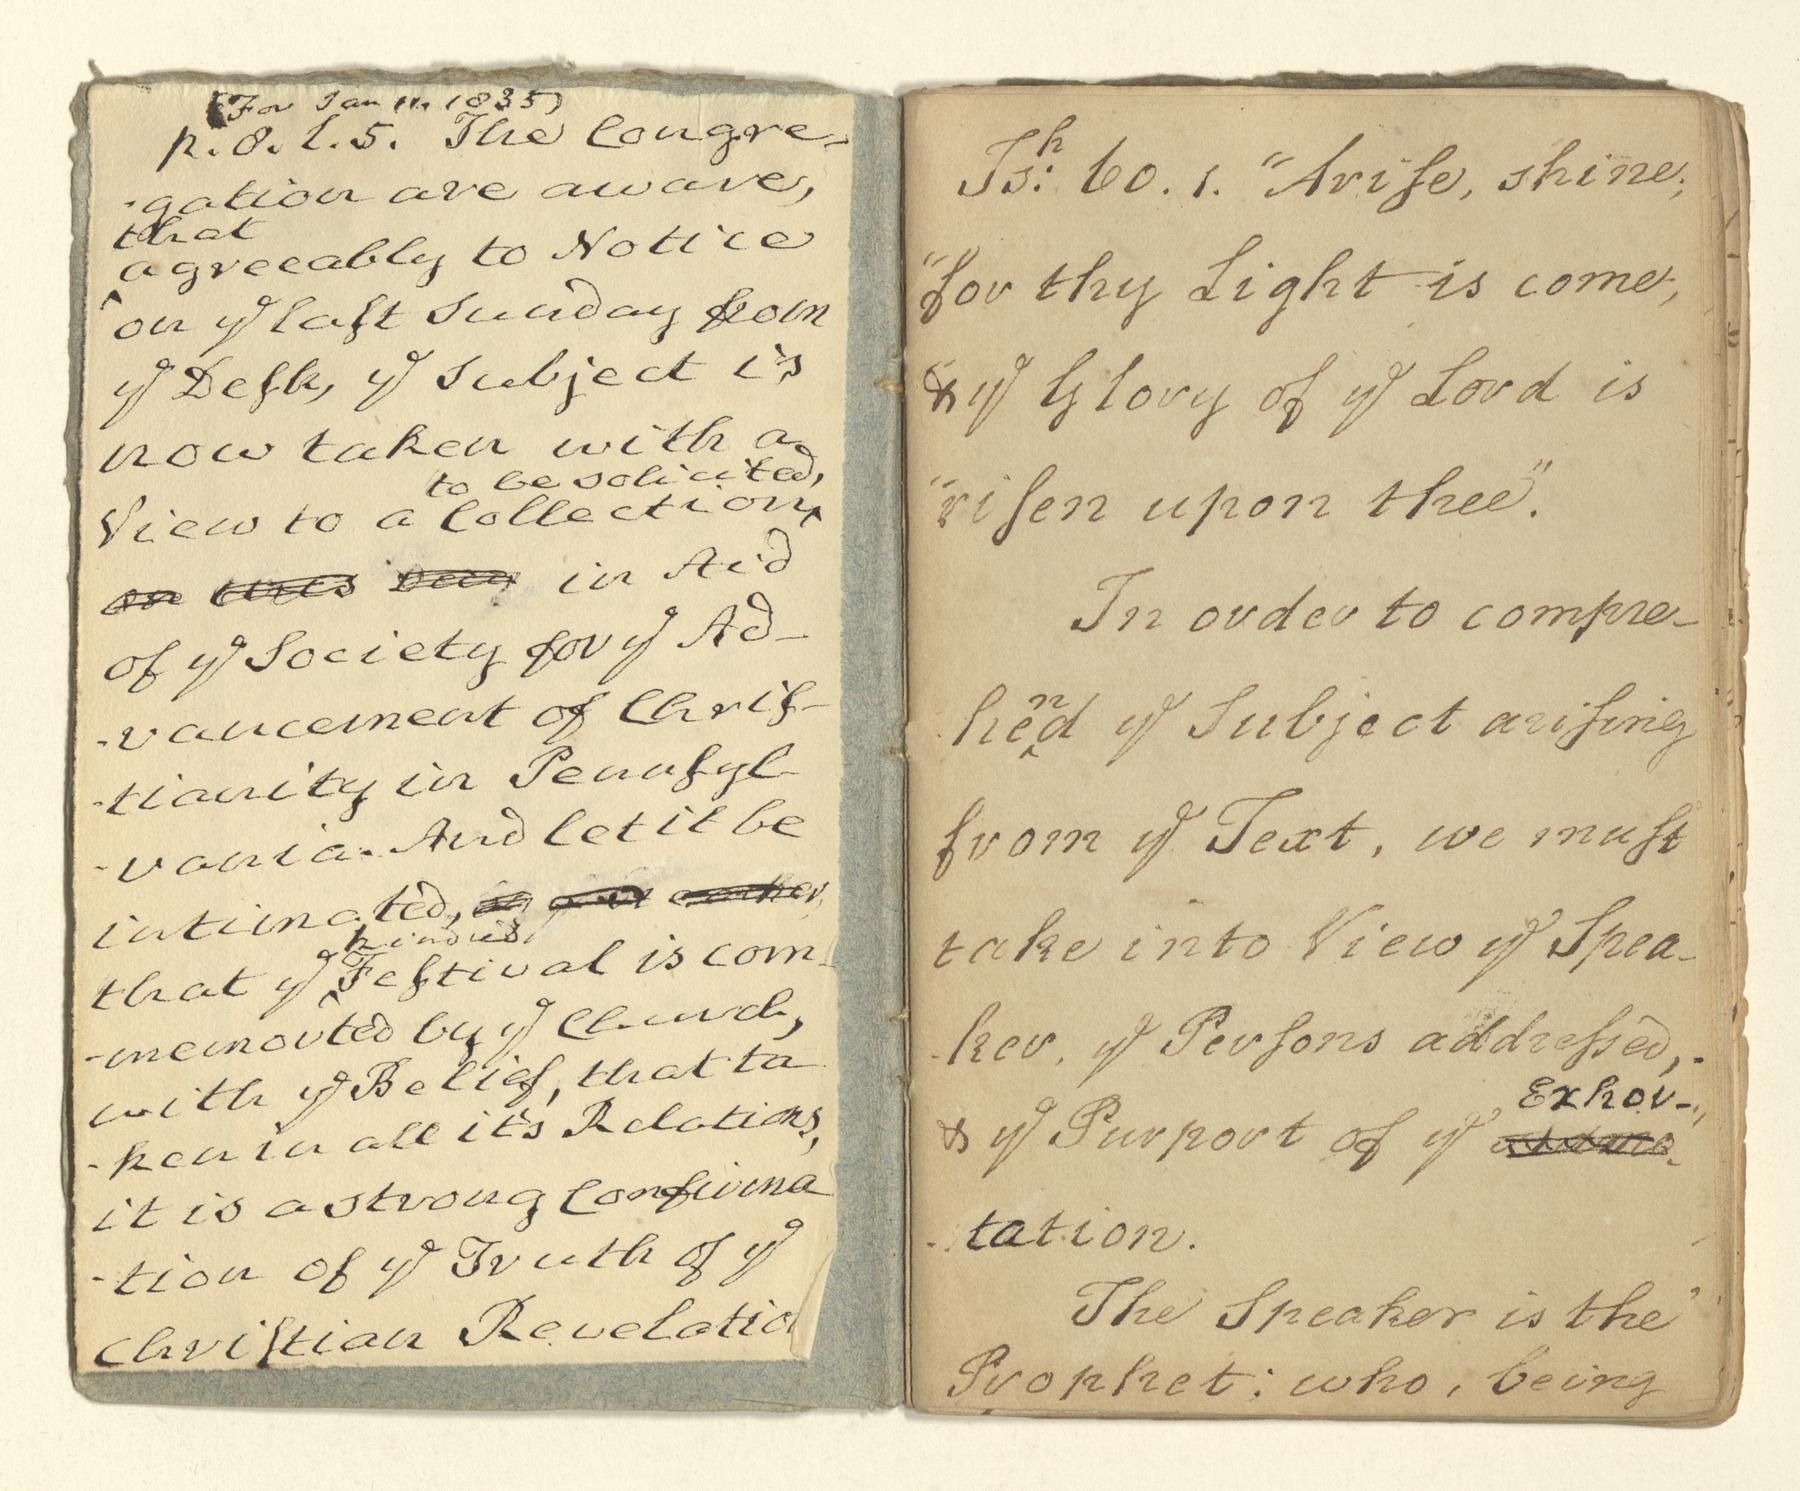 (For Jan 11. 1835)
p. 8. l. 5. The Congre-
-gation are aware,
that
agreeably to Notice
on yͤ last Sunday from
yͤ Desk, yͤ Subject is
now taken with a
to be solicited,
View to a Collection
on this Day in Aid
of yͤ Society for yͤ Ad-
-vancement of Chris-
-tianity in Pennsyl-
-vania. And let it be
intimated,
that yͤ Festival is com-
-memorated by yͤ Church,
with yͤ Belief, that ta-
-ken in all it's Relations,
it is a strong Confirma
-tion of yͤ Truth of yͤ
Christian Revelatio
Isʰ: 60. 1. "Arise, shine;
"for thy Light is come,
"& yͤ Glory of yͤ Lord is
"risen upon thee".
In order to compre-
n
hed yͤ Subject arising
from yͤ Text, we must
take into View yͤ Spea-
-ker, yͤ Persons addressed,
Exhor-
& yͤ Purport of yͤ
-tation.
The Speaker is the
Prophet: who, being